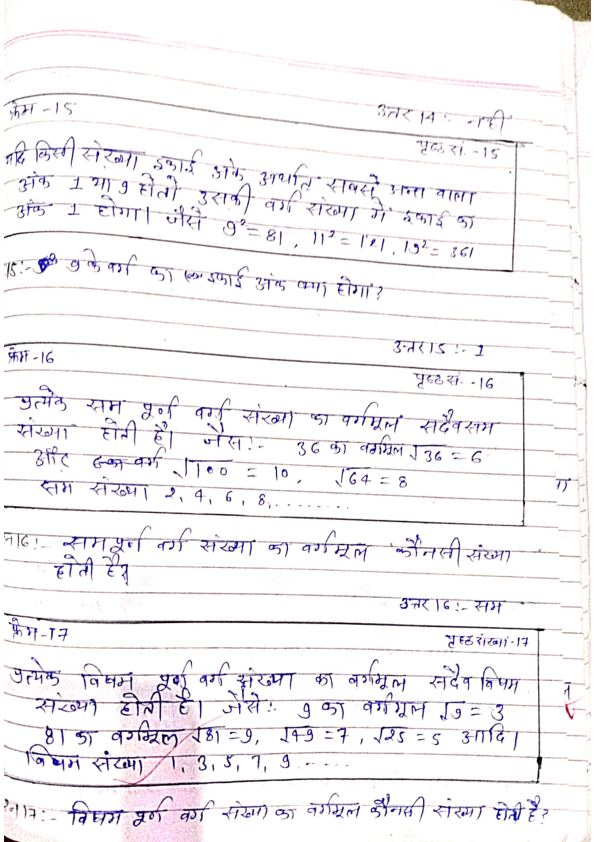 उत्तर 14 :- नहीं
फ्रेम -15
पृष्ठ सं. -15
यदि किसी संख्या इकाई अंक अर्थात सबसे अन्त वाला
अंक 1 या 9 हो तो उसकी वर्ग संख्या में इकाई का
अंक 1 होगा। जैसे 9² = 81, 11² = 121, 19² = 361
15:- 9 के वर्ग का इकाई अंक क्या होगा?
उत्तर 15 :- 1
फ्रेम -16
पृष्ठ सं. -16
प्रत्येक सम पूर्ण वर्ग संख्या का वर्गमूल सदैव सम
संख्या होती है। जैसे:- 36 का वर्गमूल √36 = 6
और √100 = 10, √64 = 8
सम संख्या 2, 4, 6, 8, ........
न16:- सम पूर्ण वर्ग संख्या का वर्गमूल कौनसी संख्या
होती है?
उत्तर 16 :- सम
फ्रेम -17
पृष्ठ संख्या -17
प्रत्येक विषम पूर्ण वर्ग संख्या का वर्गमूल सदैव विषम
संख्या होती है। जैसे:- 9 का वर्गमूल √9 = 3
81 का वर्गमूल √81 = 9, √49 = 7, √25 = 5 आदि।
विषम संख्या 1, 3, 5, 7, 9 .....
न17:- विषम पूर्ण वर्ग संख्या का वर्गमूल कौनसी संख्या होती है?